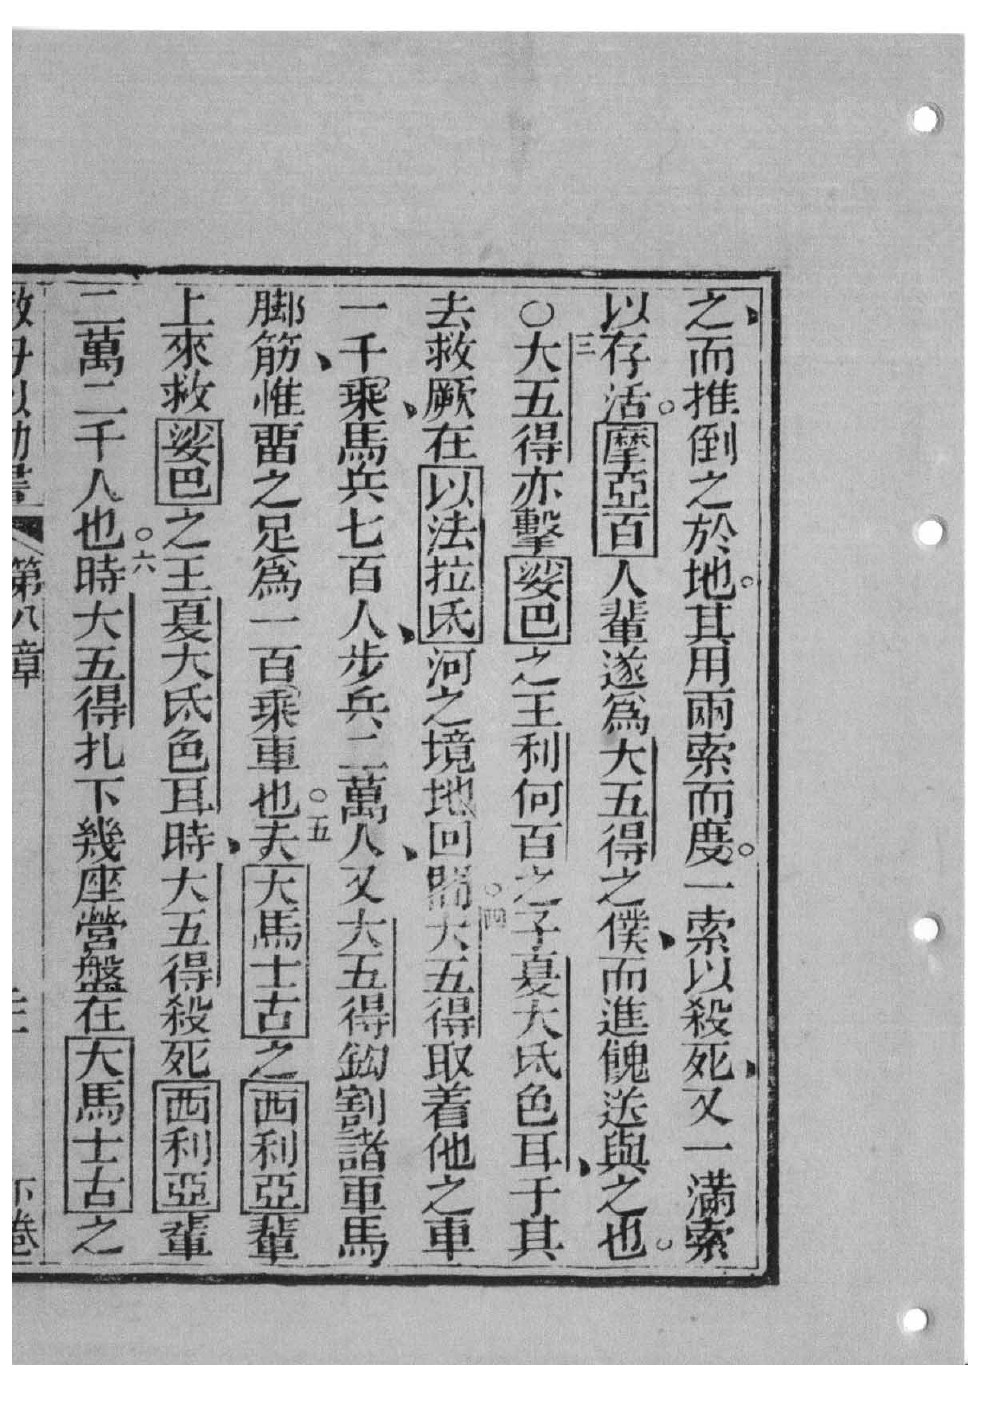 之而推倒之於地。其用兩索而度。一索以殺死又一滿索
以存活。摩亞百人輩遂爲大五得之僕而進餽送與之也。
○三大五得亦擊娑巴之王利何百之子夏大氐色耳于其
去救厥在以法拉氐河之境地回時。四大五得取着他之車
一千乘馬兵七百人步兵二萬人又大五得鈎割諸車馬
脚筋惟畱之足爲一百乘車也。五夫大馬士古之西利亞輩
上來救娑巴之王夏大氐色耳時大五得殺死西利亞輩
二萬二千人也。六時大五得扎下幾座營盤在大馬士古之
第八章 下卷